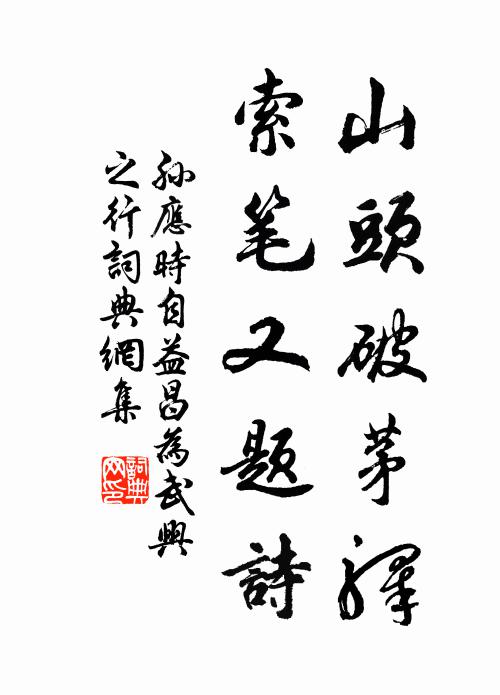 山頭破茅驛
索笔又题詩
孫應時自益昌為武興
之行詞典網集
詞典
网印